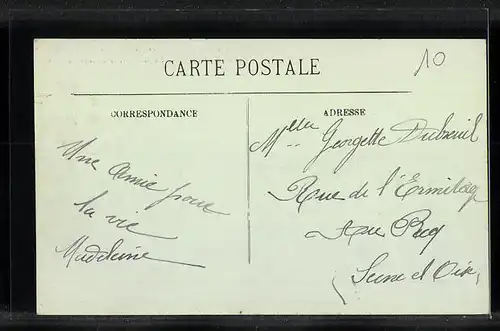 10
CARTE POSTALE
CORRESPONDANCE
ADRESSE
Une amie pour
la vie
Madeleine
Mlle Georgette Dubreuil
Rue de l'Ermitage
Seine et Oise